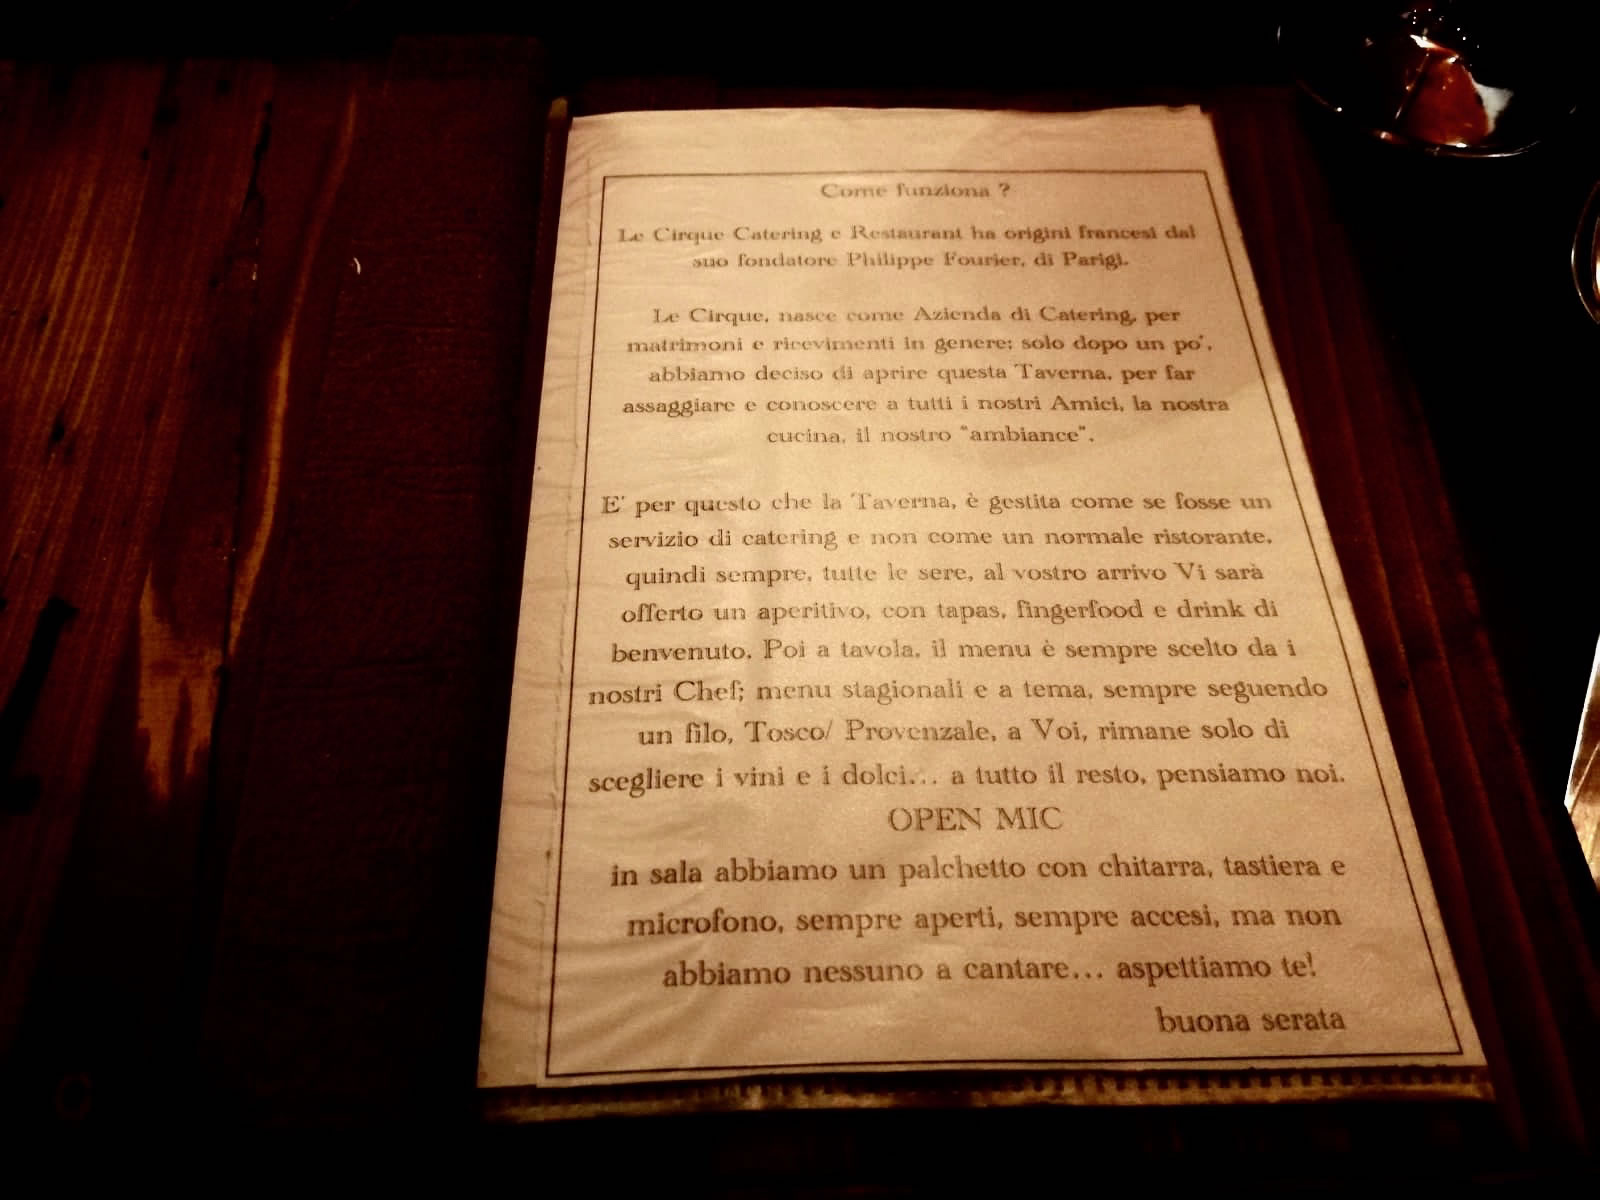 Come funziona ?
Le Cirque Catering e Restaurant ha origini francesi dal
suo fondatore Philippe Fourier, di Parigi.
Le Cirque, nasce come Azienda di Catering, per
matrimoni e ricevimenti in genere; solo dopo un po',
abbiamo deciso di aprire questa Taverna, per far
assaggiare e conoscere a tutti i nostri Amici, la nostra
cucina, il nostro "ambiance".
E' per questo che la Taverna, è gestita come se fosse un
servizio di catering e non come un normale ristorante,
quindi sempre, tutte le sere, al vostro arrivo Vi sarà
offerto un aperitivo, con tapas, fingerfood e drink di
benvenuto. Poi a tavola, il menu è sempre scelto da i
nostri Chef; menu stagionali e a tema, sempre seguendo
un filo, Tosco/ Provenzale, a Voi, rimane solo di
scegliere i vini e i dolci... a tutto il resto, pensiamo noi.
OPEN MIC
in sala abbiamo un palchetto con chitarra, tastiera e
microfono, sempre aperti, sempre accesi, ma non
abbiamo nessuno a cantare... aspettiamo te!
buona serata